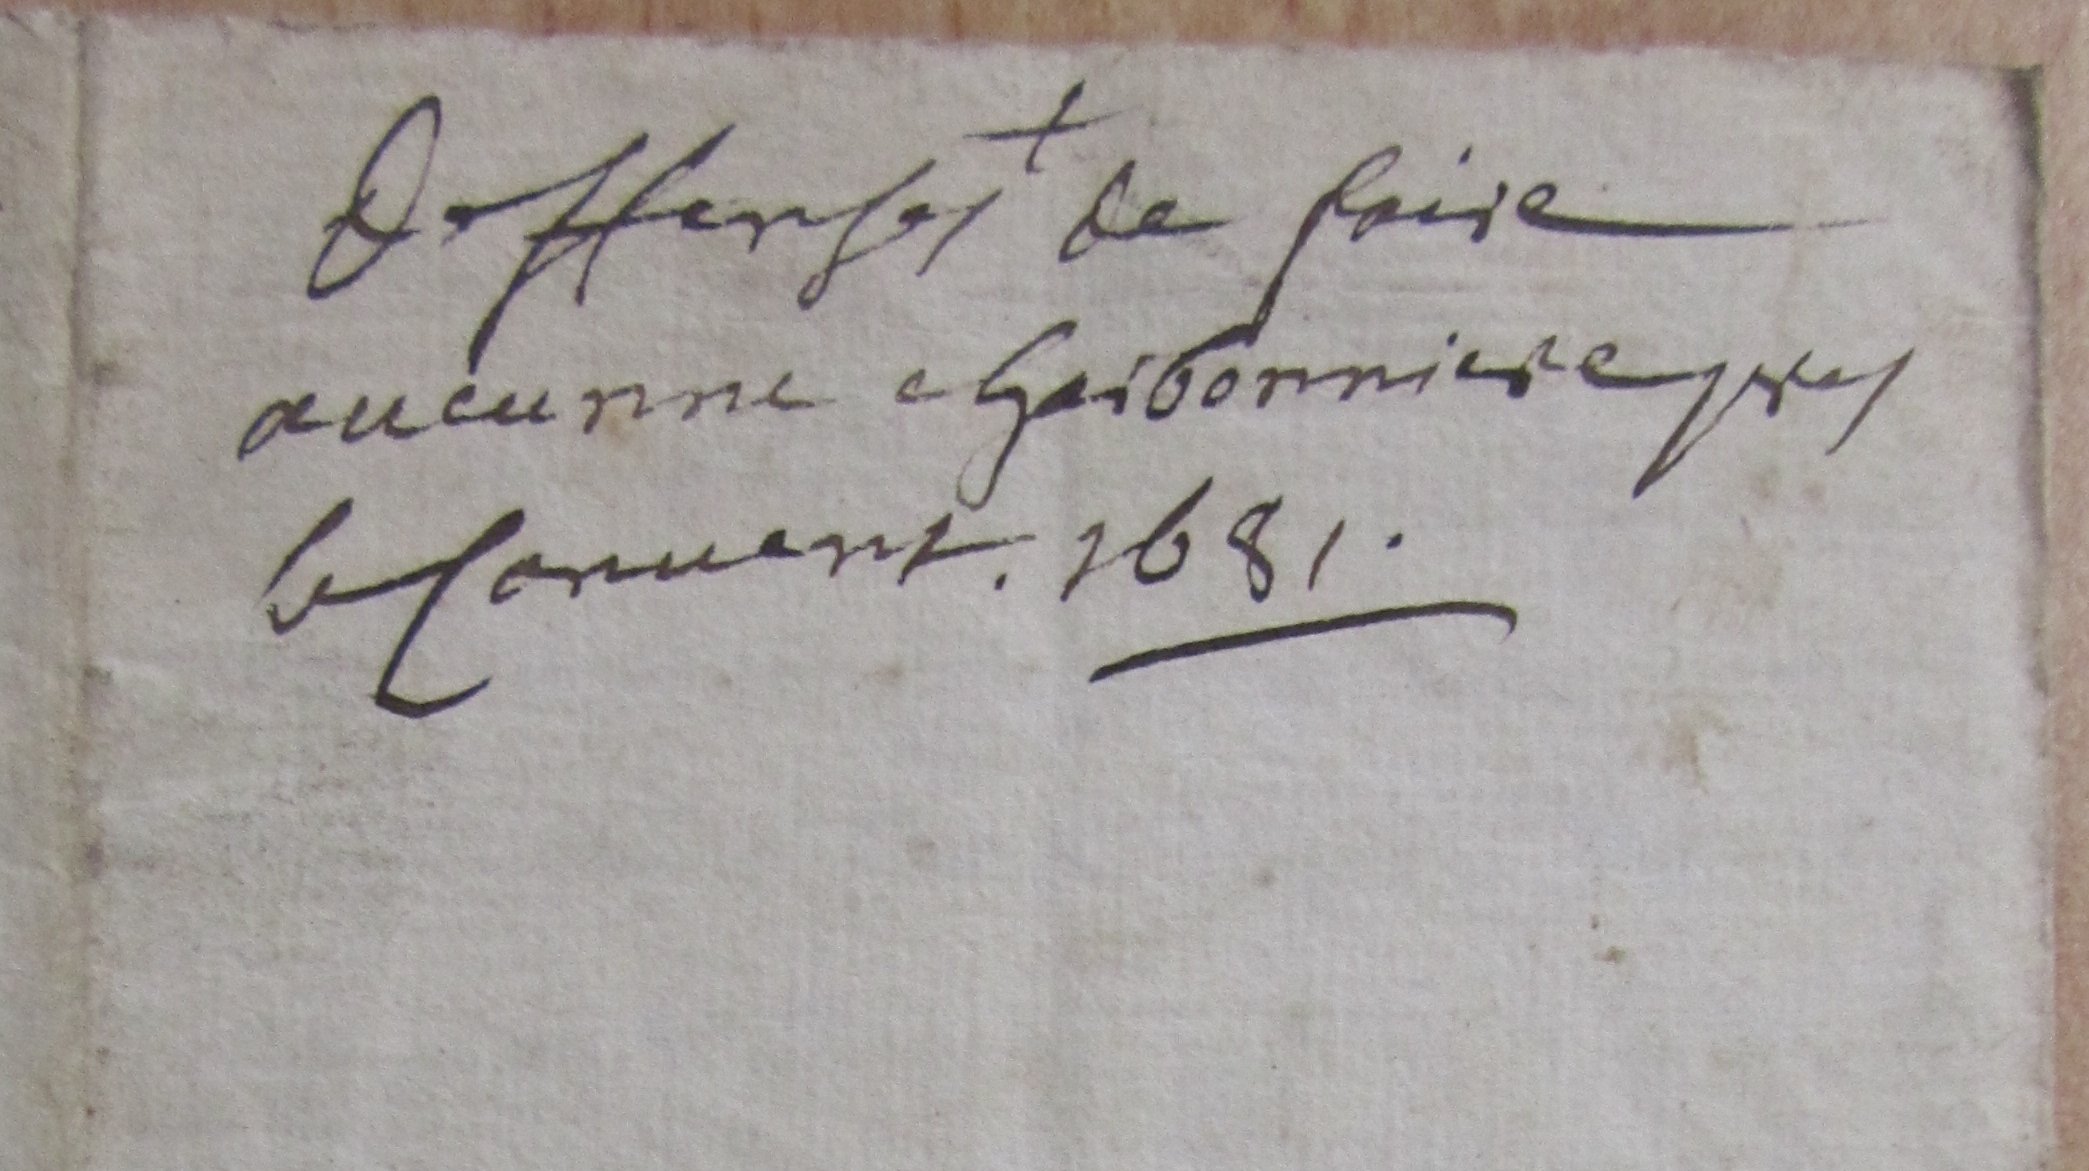 Deffenses + de faire
aucunne charbonniere pres
le Convent. 1681.